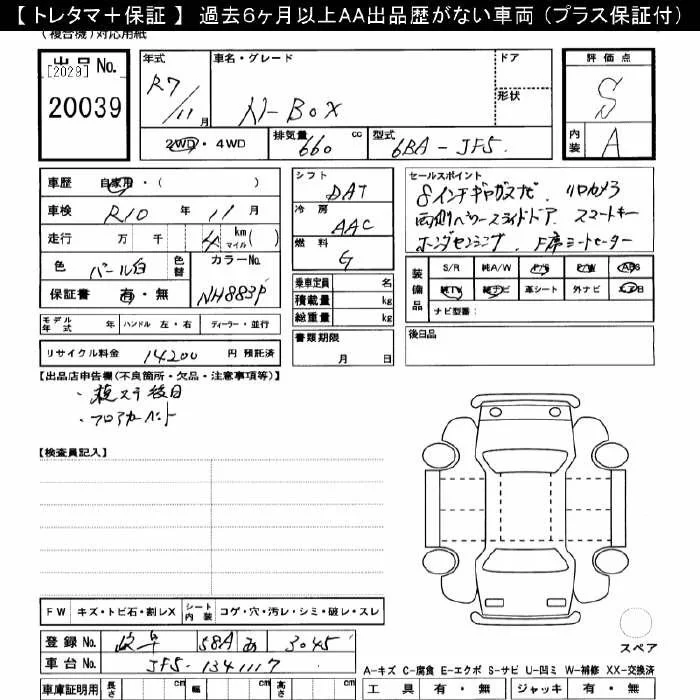 【トレタマ＋保証】 過去６ヶ月以上AA出品歴がない車両（プラス保証付）
（複合機）対応用紙
出品No. [2029]
20039
年式 R7/11月
車名・グレード N-BOX
ドア
形状
評価点 S
内装 A
2WD・4WD
排気量 660 cc
型式 6BA-JF5.
車歴 自家用・( )
車検 R10年11月
走行 万 千 4 km マイル ( )
色 パール白 色替 カラーNo. NH883P
保証書 有・無
シフト DAT
冷房 AAC
燃料 G
乗車定員 名
積載量 kg
総重量 kg
書類期限 月 日
セールスポイント
8インチギャザズナビ. リヤカメラ
両側パワースライドドア. スマートキー
ホンダセンシング. F席シートヒーター
装備品 S/R 純A/W P/S P/W ABS
純TV 純ナビ 革シート 外ナビ エアB
ナビ型番：
後日品
モデル年式 年 ハンドル 左・右 ディーラー・並行
リサイクル料金 14200 円 預託済
【出品店申告欄(不良箇所・欠品・注意事項等)】
・検ステ後日
・フロアカーペット
【検査員記入】
FW キズ・トビ石・割レX シート内装 コゲ・穴・汚レ・シミ・破レ・スレ
登録No. 岐阜 58A あ 3045
車台No. JF5-1341117
車庫証明用 長さ cm 幅 cm 高さ cm
スペア
A-キズ C-腐食 E-エクボ S-サビ U-凹ミ W-補修 XX-交換済
工具 有・無 ジャッキ 有・無